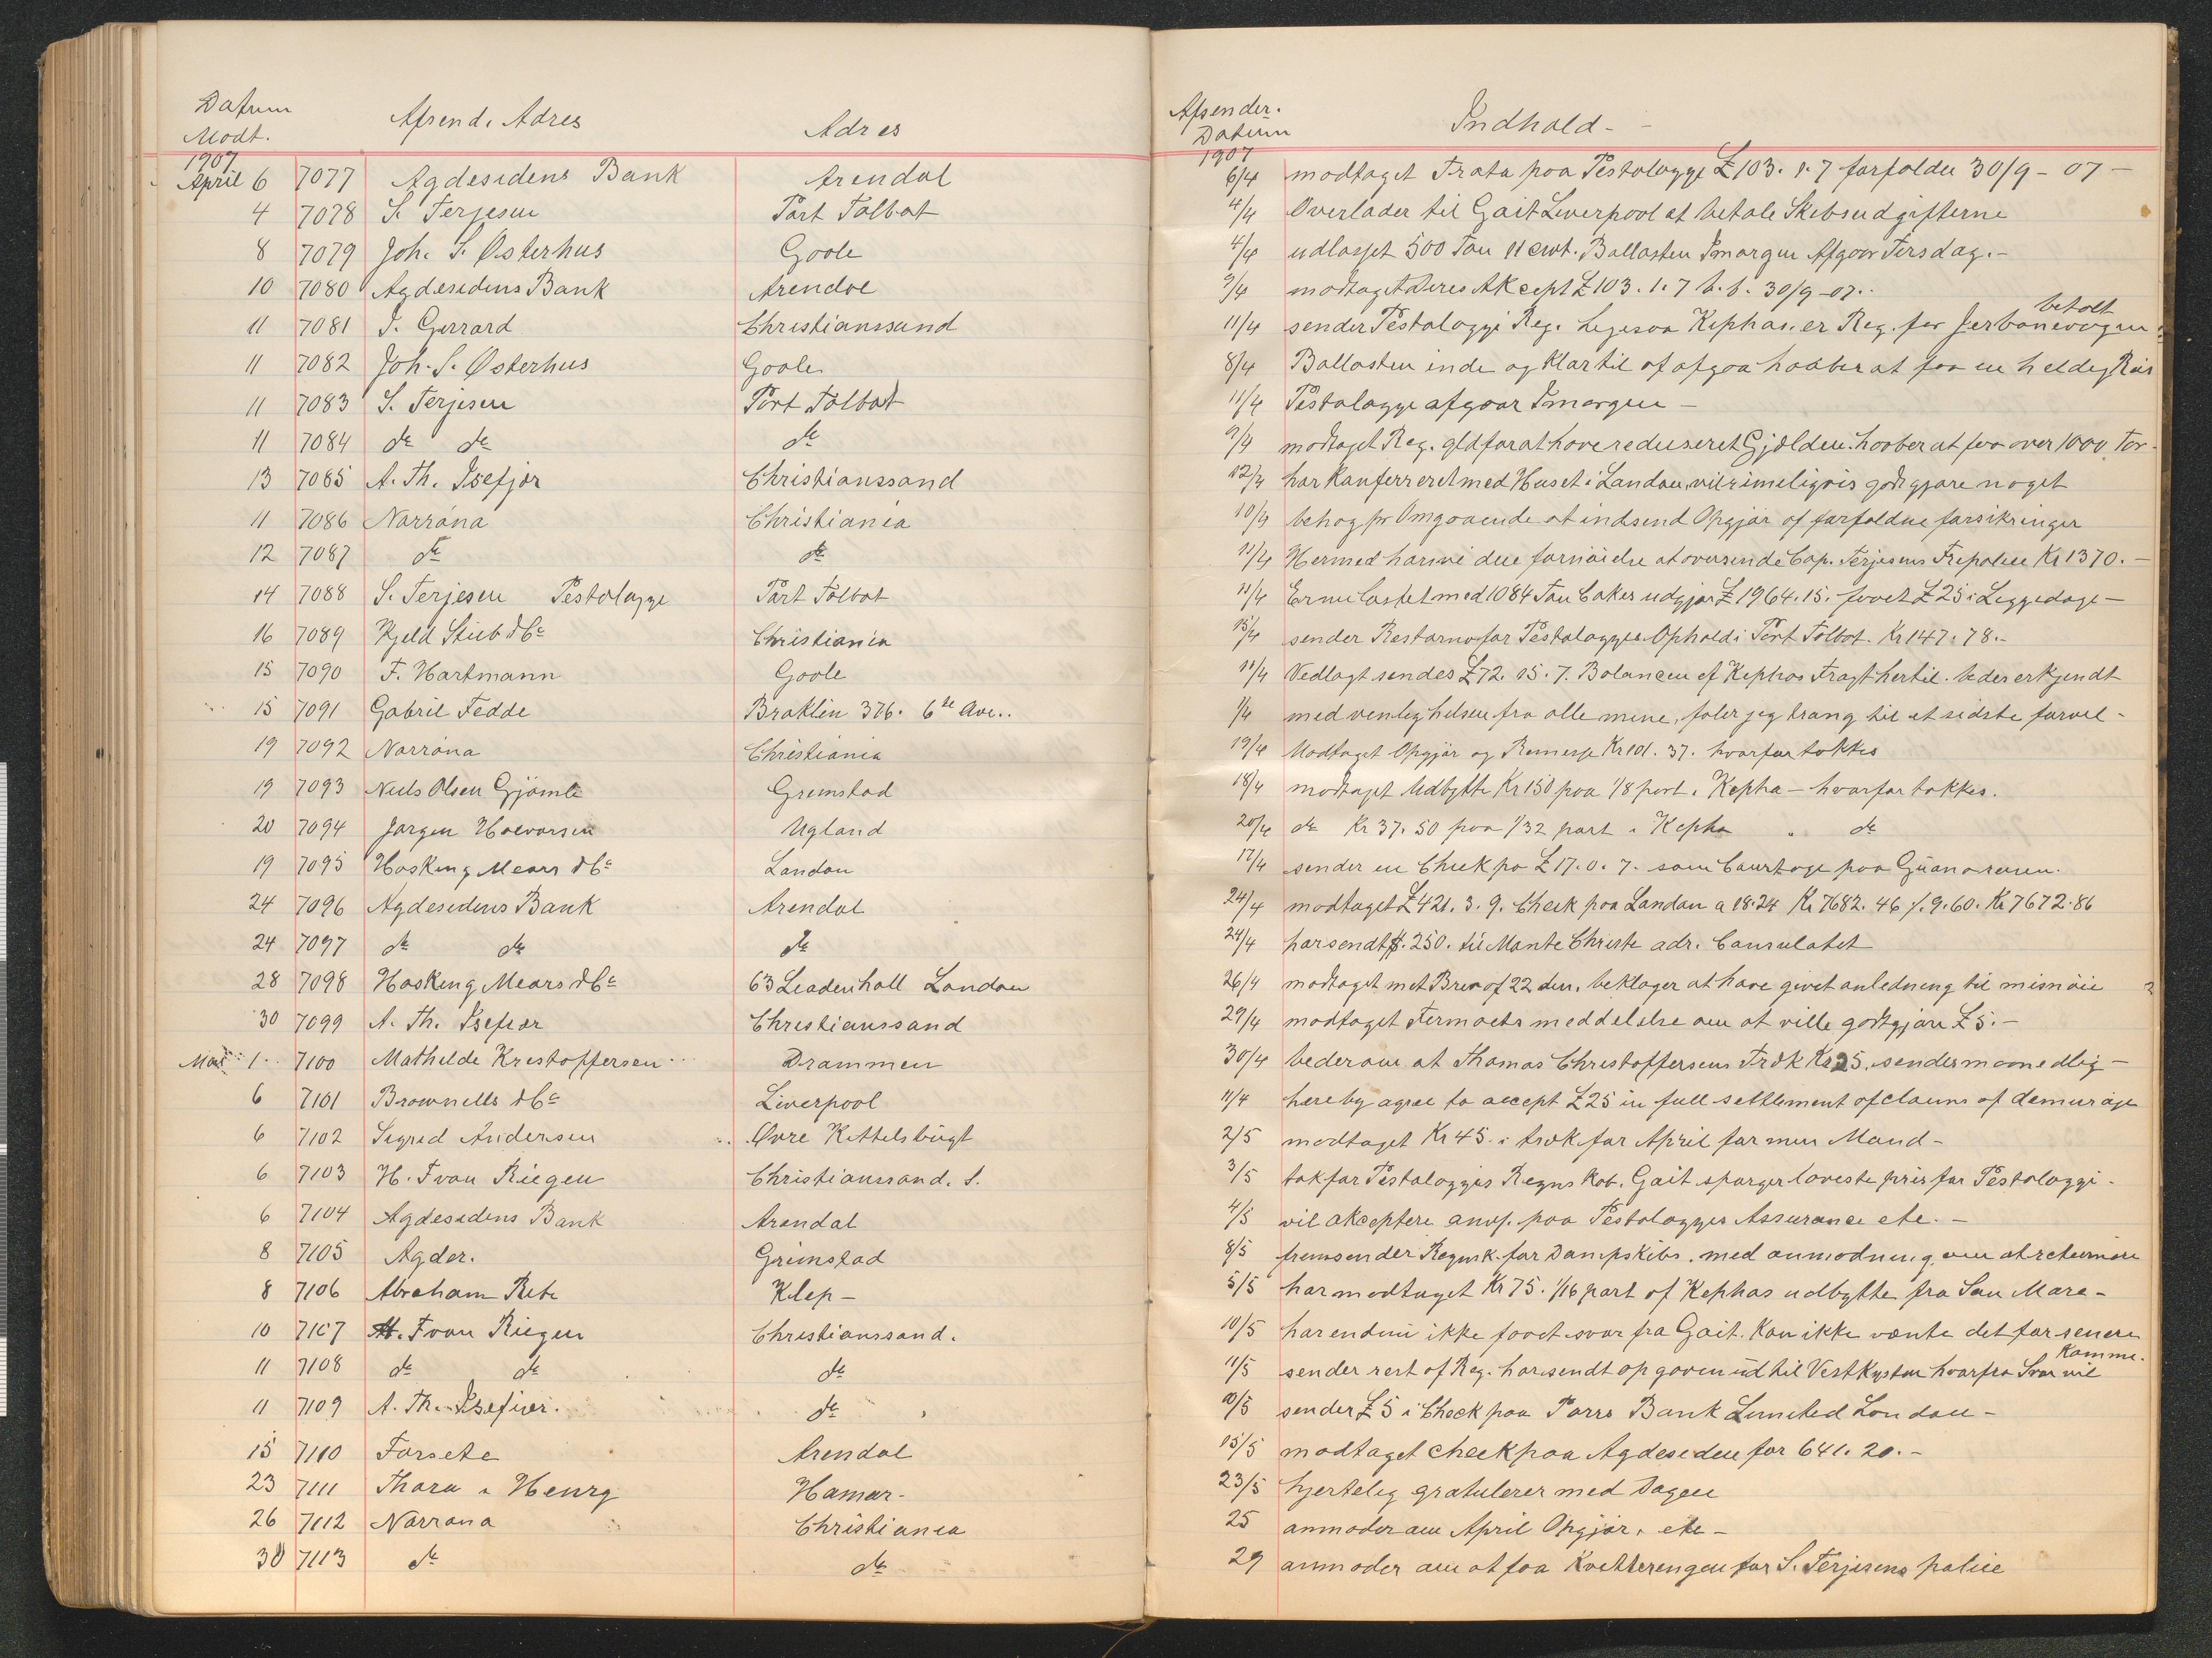 Datum
Modt. Afsend. Adres Adres
1907
April 6 7077 Agdesidens Bank Arendal
4 7078 S. Terjesen Port Talbot
8 7079 Joh. S. Østerhus Goole
10 7080 Agdesidens Bank Arendal
11 7081 J. Gerrard Christianssund
11 7082 Joh. S. Østerhus Goole
11 7083 S. Terjesen Port Talbot
11 7084 do do do
13 7085 A. Th. Isefjær Christianssand
11 7086 Norrøna Christiania
12 7087 do do
14 7088 S. Terjesen Pestalozzi Port Talbot
16 7089 Kjeld Stub & Co Christiania
15 7090 F. Hartmann Goole
15 7091 Gabril Fedde Broklin 376. 6te Ave..
19 7092 Norrøna Christiania
19 7093 Niels Olsen Gjömle Grimstad
20 7094 Jørgen Halvorsen Ugland
19 7095 Hosking Mears & Co London
24 7096 Agdesidens Bank Arendal
24 7097 do do do
28 7098 Hosking Mears & Co 63 Leadenhall London
30 7099 A. Th. Isefiær Christianssand
Mai 1 7100 Mathilde Kristoffersen Drammen
6 7101 Brownells & Co Liverpool
6 7102 Sigrid Andersen Øvre Kittelsbugt
6 7103 H. F van Riegen Christianssand. S.
6 7104 Agdesidens Bank Arendal
8 7105 Agder. Grimstad
8 7106 Abraham Klep –
10 7107 H. F van Riegen Christianssand.
11 7108 do do do
11 7109 A. Th. Isefiær. do
15 7110 Forsete Arendal
23 7111 Thora & Henry Hamar-
26 7112 Norrøna Christiania
30 7113 do do
Afsender.
Datum Indhold-
1907
6/4 modtaget Trata paa Pestalozzi £ 103. 1. 7 forfalden 30/9 - 07 –
4/4 Overlader til Gait Liverpool at betale Skibsudgifterne
4/4 udlosset 500 Ton 11 cwt. Ballasten Imorgen Afgaar Tirsdag. –
9/4 modtaget Deres Akcept £ 103. 1. 7 b. f. 30/9 - 07..
betalt
11/4 sender Pestalozzi Reg. Kephas. er Reg. for Jerbanevogne
8/4 Ballasten inde og klar til at afgaa haaber at faa en heldig Reis
11/4 Pestalozzi afgaar Imorgen –
9/4 modtaget Reg. gld for at have reduseret Gjælden. haaber at faa over 1000 Ton
12/4 har Konferreret med Huset i London, vil rimeligvis godtgjøre noget
10/4 behag pr Omgaaende at indsend Opgjør af forfaldne forsikringer
11/4 Hermed have vi den fornøielse at oversende Cap. Terjesens Fripolice Kr 1370. –
11/4 Er nu lastet med 1084 Ton Cokes udgjør £ 1964. 15. faaet £ 25 i Liggedage –
15/4 sender for Pestalozzis Ophold i Port Talbot. Kr 147. 78. –
11/4 Vedlagt sendes £ 72. 15. 7. Balancen af Kephas Fragt hertil. beder erkjendt
1/4 med venlig hilsen fra alle mine, føler jeg trang til et sidste farvel -
19/4 Modtaget Opgjør og Remesse Kr 101. 37. hvorfor takkes
18/4 modtaget Udbytte Kr 150 paa 1/8 part i Kepha – hvorfor takkes.
20/4 do Kr 37. 50 paa 1/32 part i Kepha do
17/4 sender en Chek pa £ 17. 0. 7. som Courtage paa Guanoreisen.
24/4 modtaget £ 421. 3. 9. Check paa London a 18.24 Kr 7682. 46 ./. 9.60. Kr 7672.86
24/4 har sendt $. 250. til Monte Christe adr. Consulatet
26/4 modtaget mit Brev af 22 den, beklager at have givet anledning til misnøie
29/4 modtaget meddelelse om at ville godtgjøre £ 5. –
30/4 beder om at Thomas Christoffersens Træk Kr 25. sendes maanedlig –
11/4 hereby agree to accept £ 25 in full settlement of claims of demurage
2/5 modtaget Kr 45. i træk for April for min Mand -
3/5 tak for Pestalozzis Regnskab. Gait spørger laveste pris for Pestalozzi -
4/5 vil akceptere anv. paa Pestalozzis Assurance etc. –
8/5 fremsender Regnsk. for Dampskibs. med anmodning om at returnere
5/5 har modtaget Kr 75. 1/16 part af Kephas udbytte fra San Mare -
10/5 har endnu ikke faaet svar fra Gait. Kan ikke vente det før senere
11/5 sender rest af Reg. har sendt opgaven ud til Vestkysten hvorfra Svar vil
Komme.
10/5 sender £ 5 i Check paa Parrs Bank Limited London –
15/5 modtaget check paa Agdesiden for 641. 20. –
23/5 hjertelig gratulerer med Dagen
25 anmoder om April Opgjør, etc –
29 anmoder om at faa Kvitteringen for S. Terjesens police